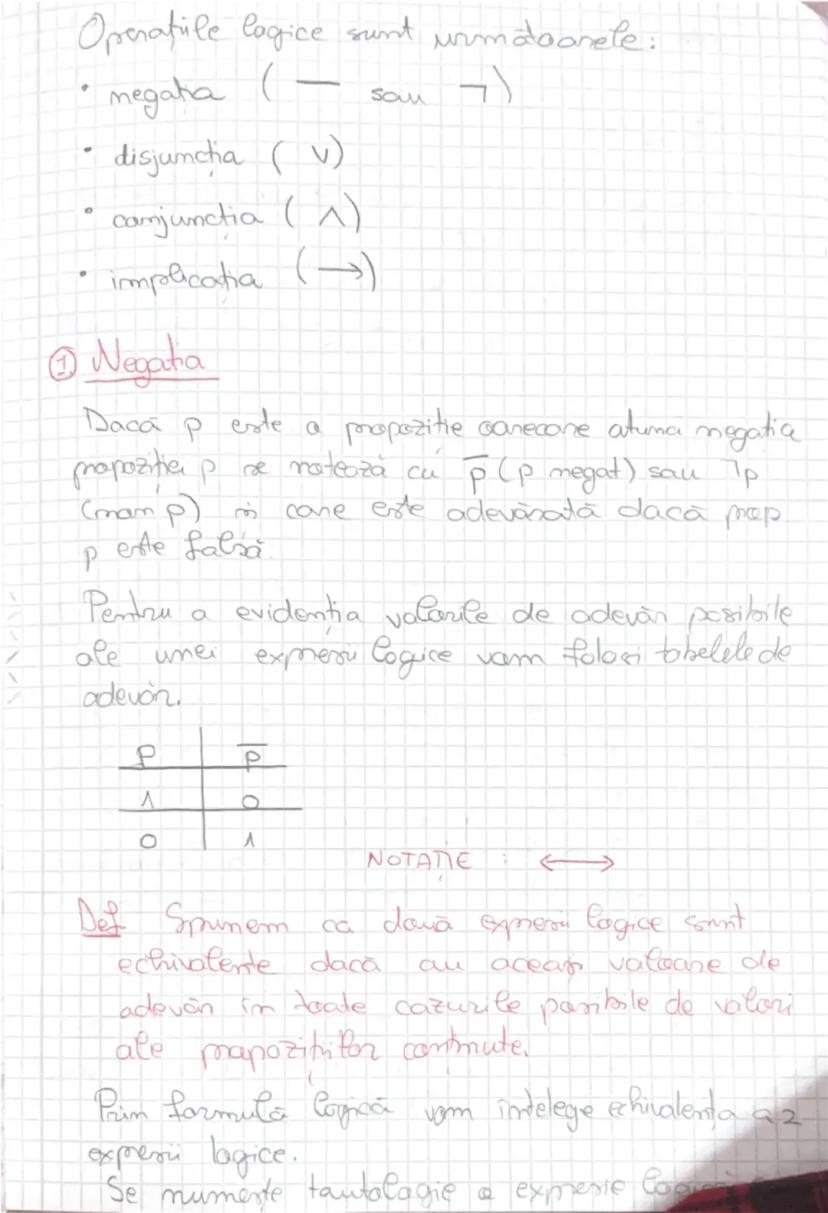 Operațiile logice sunt următoarele:
• negația ( — sau ¬)
• disjuncția ( ∨)
• conjuncția ( ∧)
• implicația (→)
① Negația
Dacă p este o propoziție oarecare atunci negația
propoziției p se notează cu p̅ (p negat) sau ¬p
(non p) și care este adevărată dacă prop
p este falsă.
Pentru a evidenția valorile de adevăr posibile
ale unei expresii logice vom folosi tabelele de
adevăr.
p p̅
1 0
0 1
NOTAȚIE : ↔
Def Spunem ca două expresii logice sunt
echivalente dacă au aceași valoare de
adevăr în toate cazurile posibile de valori
ale propozițiilor conținute.
Prin formulă logică vom intelege echivalența a 2
expresii logice.
Se numește tautologie o expresie logică